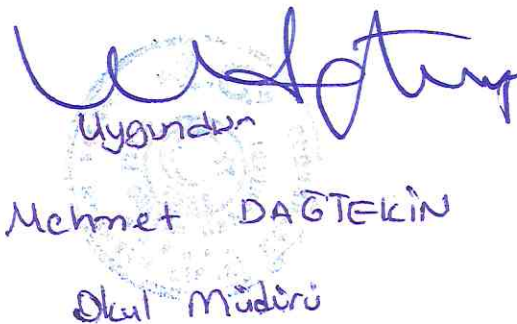 Uygundur
Mehmet DAĞTEKİN
Okul Müdürü